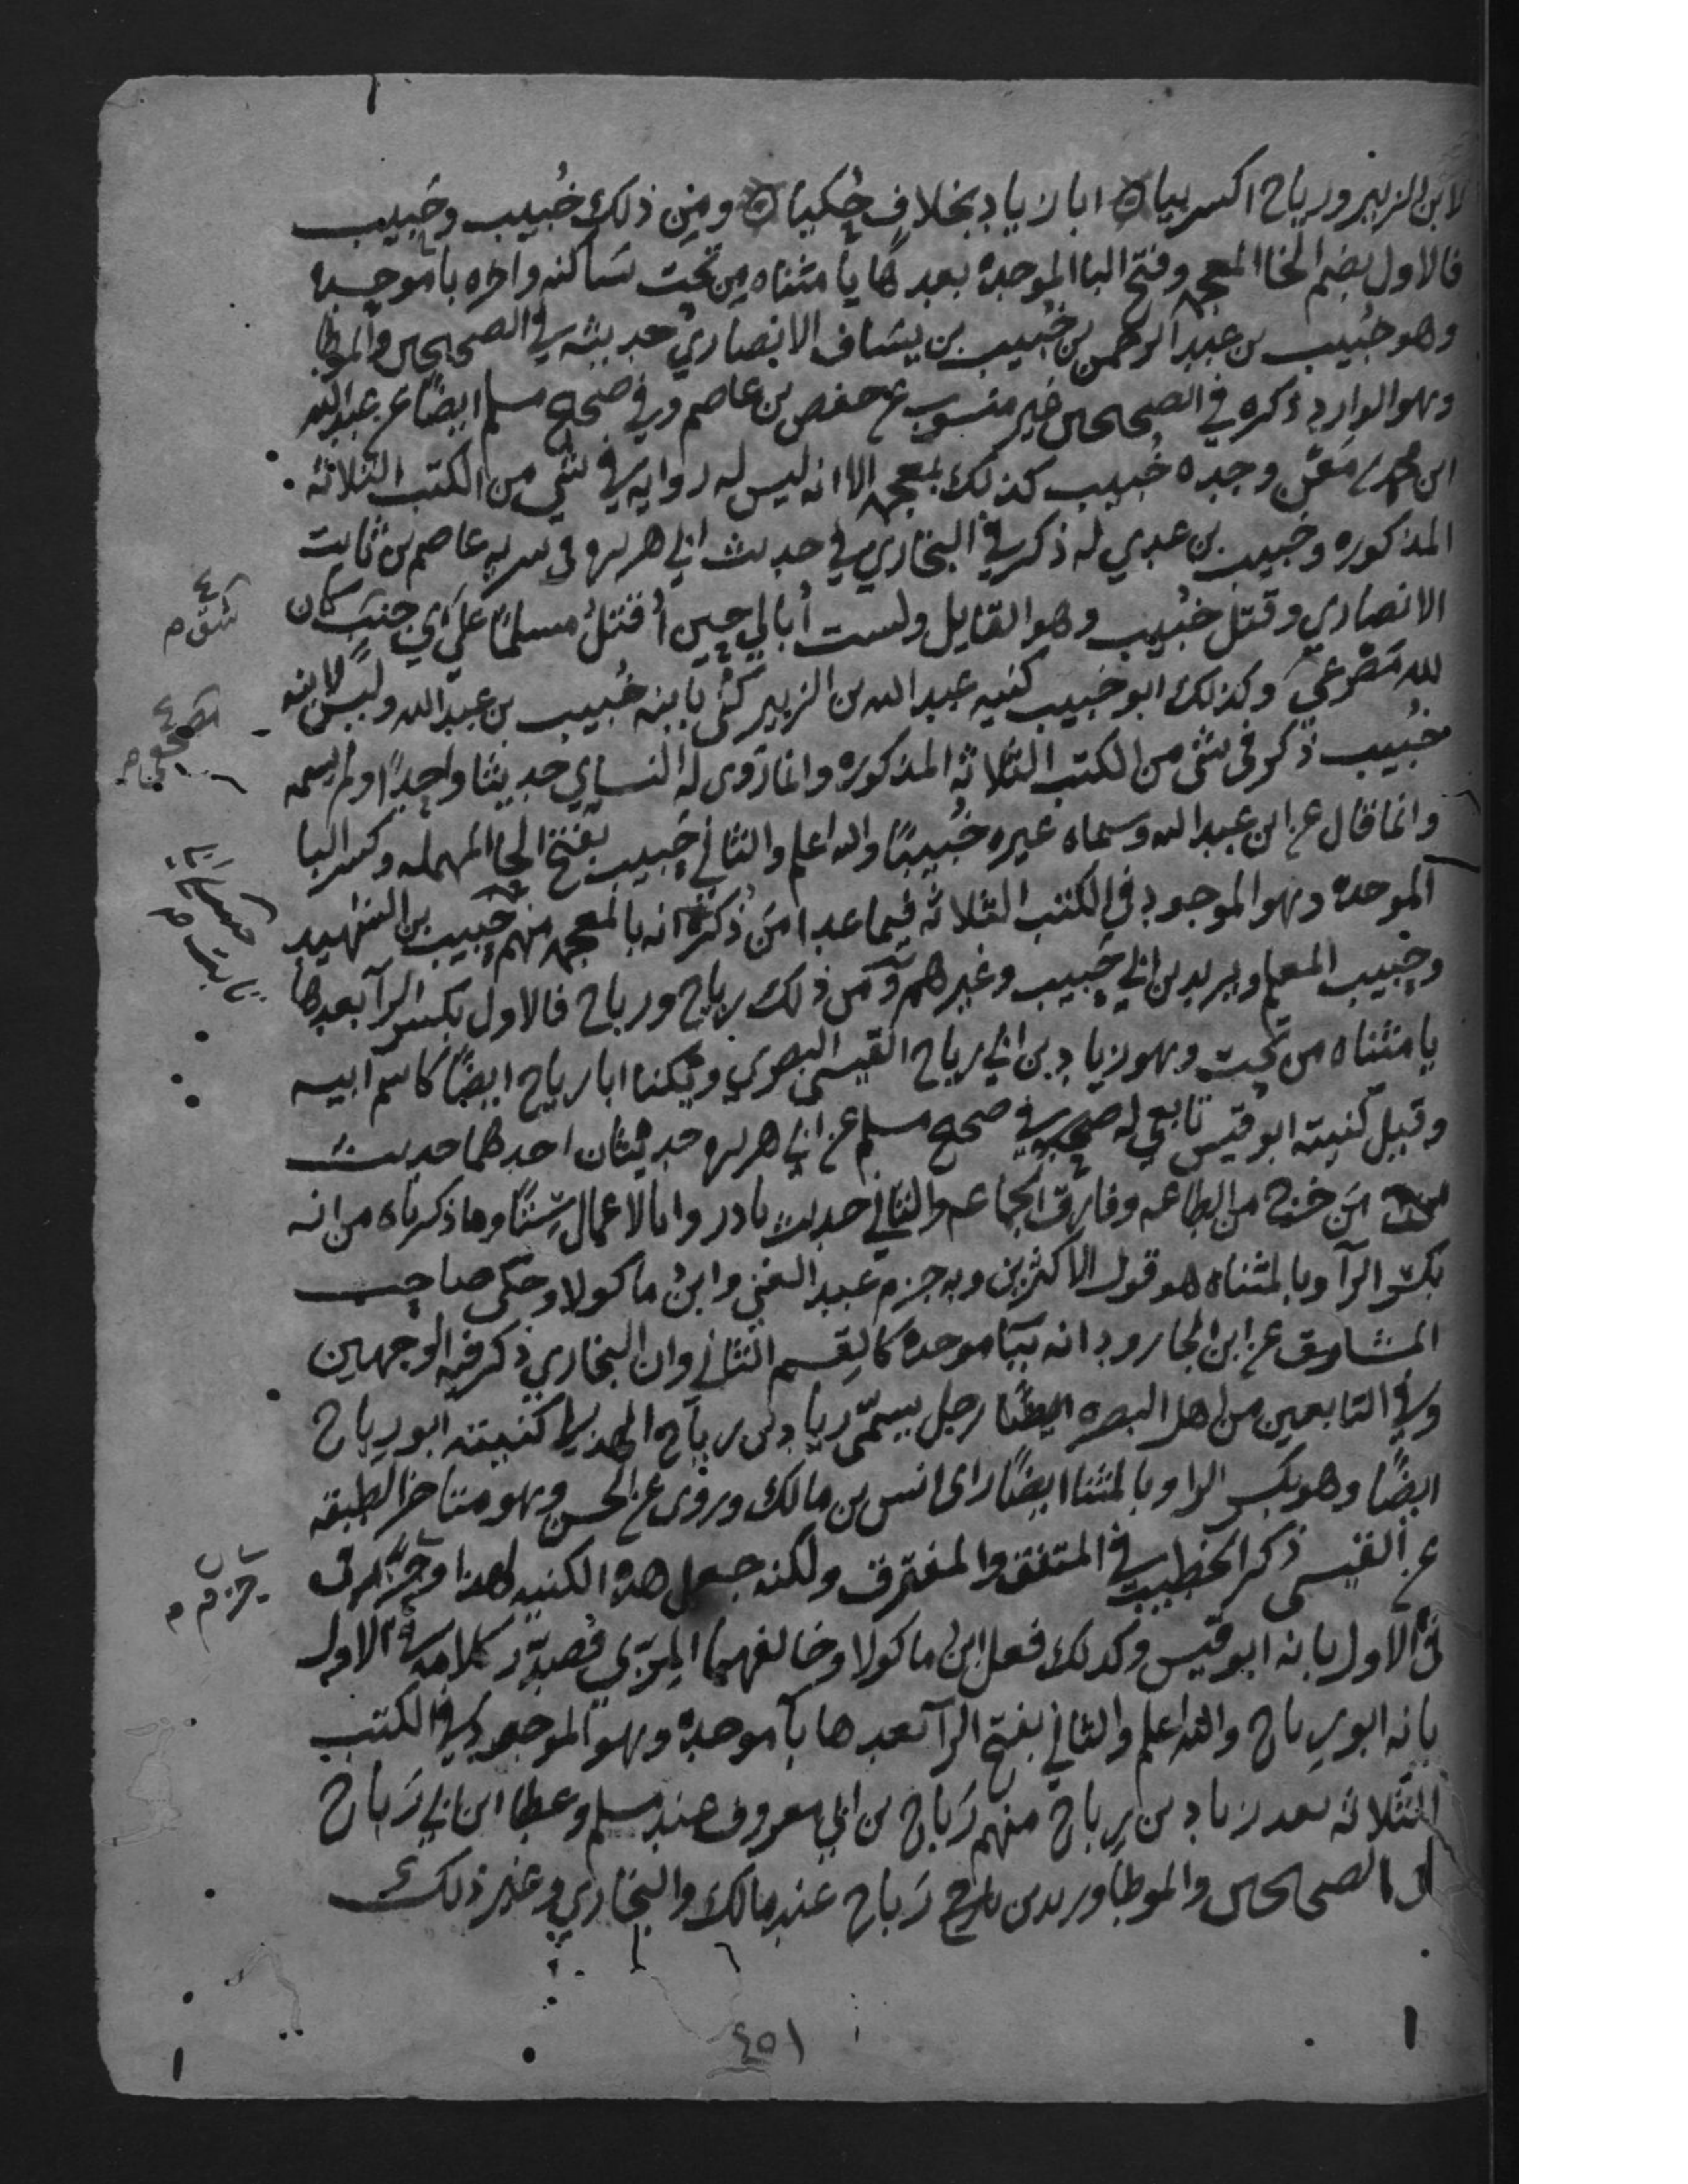 لابن الزبير ورياح اكسر بيا ابا زياد بخلاف حكيا ومن ذلك خُبيب وحَبيب
فالاول بضم الخا المعجمه وفتح البا الموحده بعدها يا مثناه من تحت ساكنه واخره با موحده
وهو خُبيب بن عبد الرحمن بن خُبيب بن يساف الانصاري حديثه في الصحيحين والموطا
وهو الوارد ذكره في الصحيحين غير منسوب عن حفص بن عاصم وفي صحيح مسلم ايضًا عن عبد الله
ابن محمد بن مَعْن وجده خُبيب كذلك بمعجمه الا انه ليس له روايه في شي من الكتب الثلاثه
المذكوره وخبيب بن عدي له ذكر في البخاري في حديث ابي هريره في سريه عاصم بن ثابت
الانصاري وقتل خُبيب وهو القايل ولست أبالي حين أقتلُ مسلمًا على اي جنب كان
لله مَصْرعي وكذلك ابو خبيب كنيه عبد الله بن الزبير كُني بابنه خُبيب بن عبد الله وليس لابنه
خُبيب ذكر في شي من الكتب الثلاثه المذكوره وانما روى له النساي حديثا واحدًا ولم يسمه
وانما قال عن ابن عبد الله وسماه غيره خُبيبًا والله اعلم والثاني حَبيب بفتح الحا المهمله وكسر البا
الموحده وهو الموجود في الكتب الثلاثه فيما عدا مَن ذُكر انه بالمعجمه منهم حَبيب بن الشهيد
وحبيب المعلم ويزيد بن ابي حَبيب وغيرهم ومن ذلك رياح ورباح فالاول بكسر الرآ بعدها
يا مثناه من تحت وهو زياد بن ابي رياح القيسي البصري ويكنا ابا رياح ايضًا كاسم ابيه
وقيل كنيته ابو قيس تابعي له في صحيح مسلم عن ابي هريره حديثان احدهما حديث
مَن خرج من الطاعه وفارق الجماعه والثاني حديث بادروا بالاعمال سِتًّا وما ذكرناه من انه
بكسر الرآ وبالمثناه هو قول الاكثرين وبه جزم عبد الغني وابنُ ماكولا وحكى صاحب
المشارق عن ابن الجارود انه بِبَا موحده كالقسم الثاني وان البخاري ذكر فيه الوجهين
وفي التابعين من اهل البصره ايضًا رجل يسمّى زياد بن رياح الهذلي كنيته ابو رياح
ايضًا وهو بكسر الرا وبالمثنا ايضًا راى انس بن مالك وروى عن الحسن وهو متاخر الطبقه
عن القيسي ذكر الخطيب في المتفق والمفترق ولكنه جعل هذه الكنيه لهذا وجزم في
في الاول بانه ابو قيس وكذلك فعل ابن ماكولا وخالفهما المِزّي فصدّر كلامه في الاول
بانه ابو رياح والله اعلم والثاني بفتح الرآ بعدها بآ موحده وهو الموجود في الكتب
الثلاثه بعد زياد بن رياح منهم رَباح بن ابي معروف عند مسلم وعطا ابن ابي رَباح
في الصحيحين والموطا وزيد بن رَباح عند مالك والبخاري وغير ذلك
٤٥١